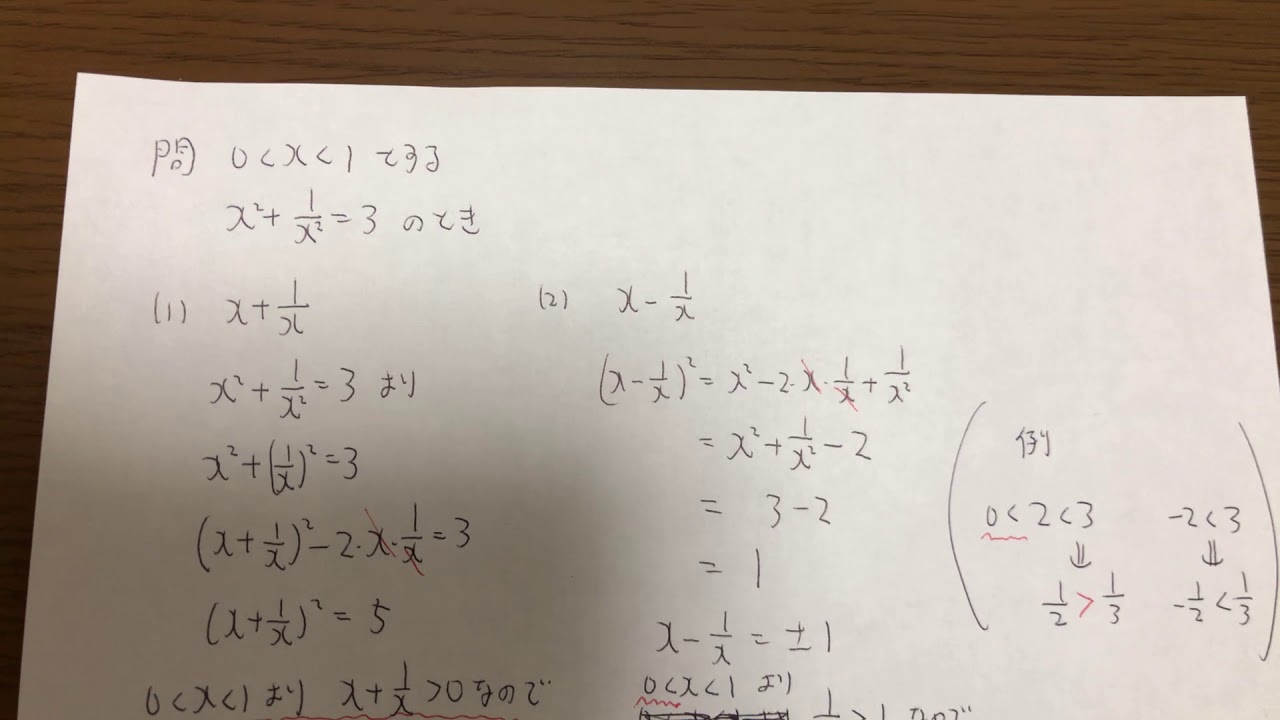 問 0<x<1とする
x²+1/x²=3 のとき
(1) x+1/x
x²+1/x²=3 より
x²+(1/x)²=3
(x+1/x)²-2・x・1/x=3
(x+1/x)²=5
0<x<1より x+1/x>0なので
(2) x-1/x
(x-1/x)²=x²-2・x・1/x+1/x²
=x²+1/x²-2
= 3-2
= 1
x-1/x=±1
0<x<1 より
1/x>1なので
例
0<2<3 -2<3
⇓ ⇓
1/2>1/3 -1/2<1/3